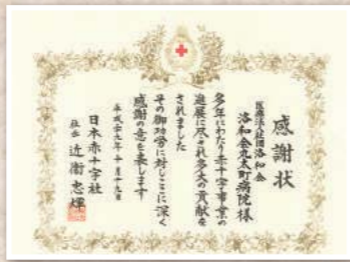 感謝状
医療法人社団洛和会
洛和会丸太町病院様
多年にわたり赤十字事業の
進展に尽され多大の貢献を
されました
その御功労に対しここに深く
感謝の意を表します
平成二十九年十月十九日
日本赤十字社
社長 近衞忠煇